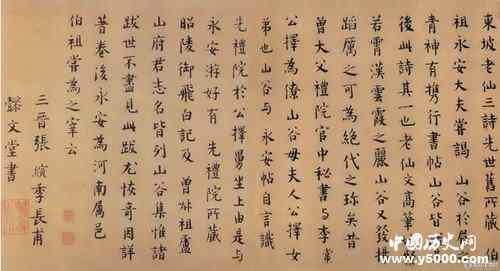 東坡老仙三詩先世舊所藏伯
祖永安大夫嘗謁山谷於
青神有携行書帖山谷皆
後此詩其一也老仙文高筆
若霄漢雲霞之麗山谷又發揚
蹈厲之可為絕代之珎矣昔
曾大父禮院官中秘書與李常
公擇為僚山谷母夫人公擇女
弟也山谷與永安帖自言識
先禮院於公擇舅坐上由是与
永安游好有先禮院所藏
昭陵御飛白記及曾叔祖盧
山府君志名皆列山谷集惟諸
跋世不盡見此跋尤恢奇因詳
著卷後永安為河南屬邑
伯祖嘗為之宰云
三晉張縯季長甫
懿文堂書
中国历史网
www.y5000.com